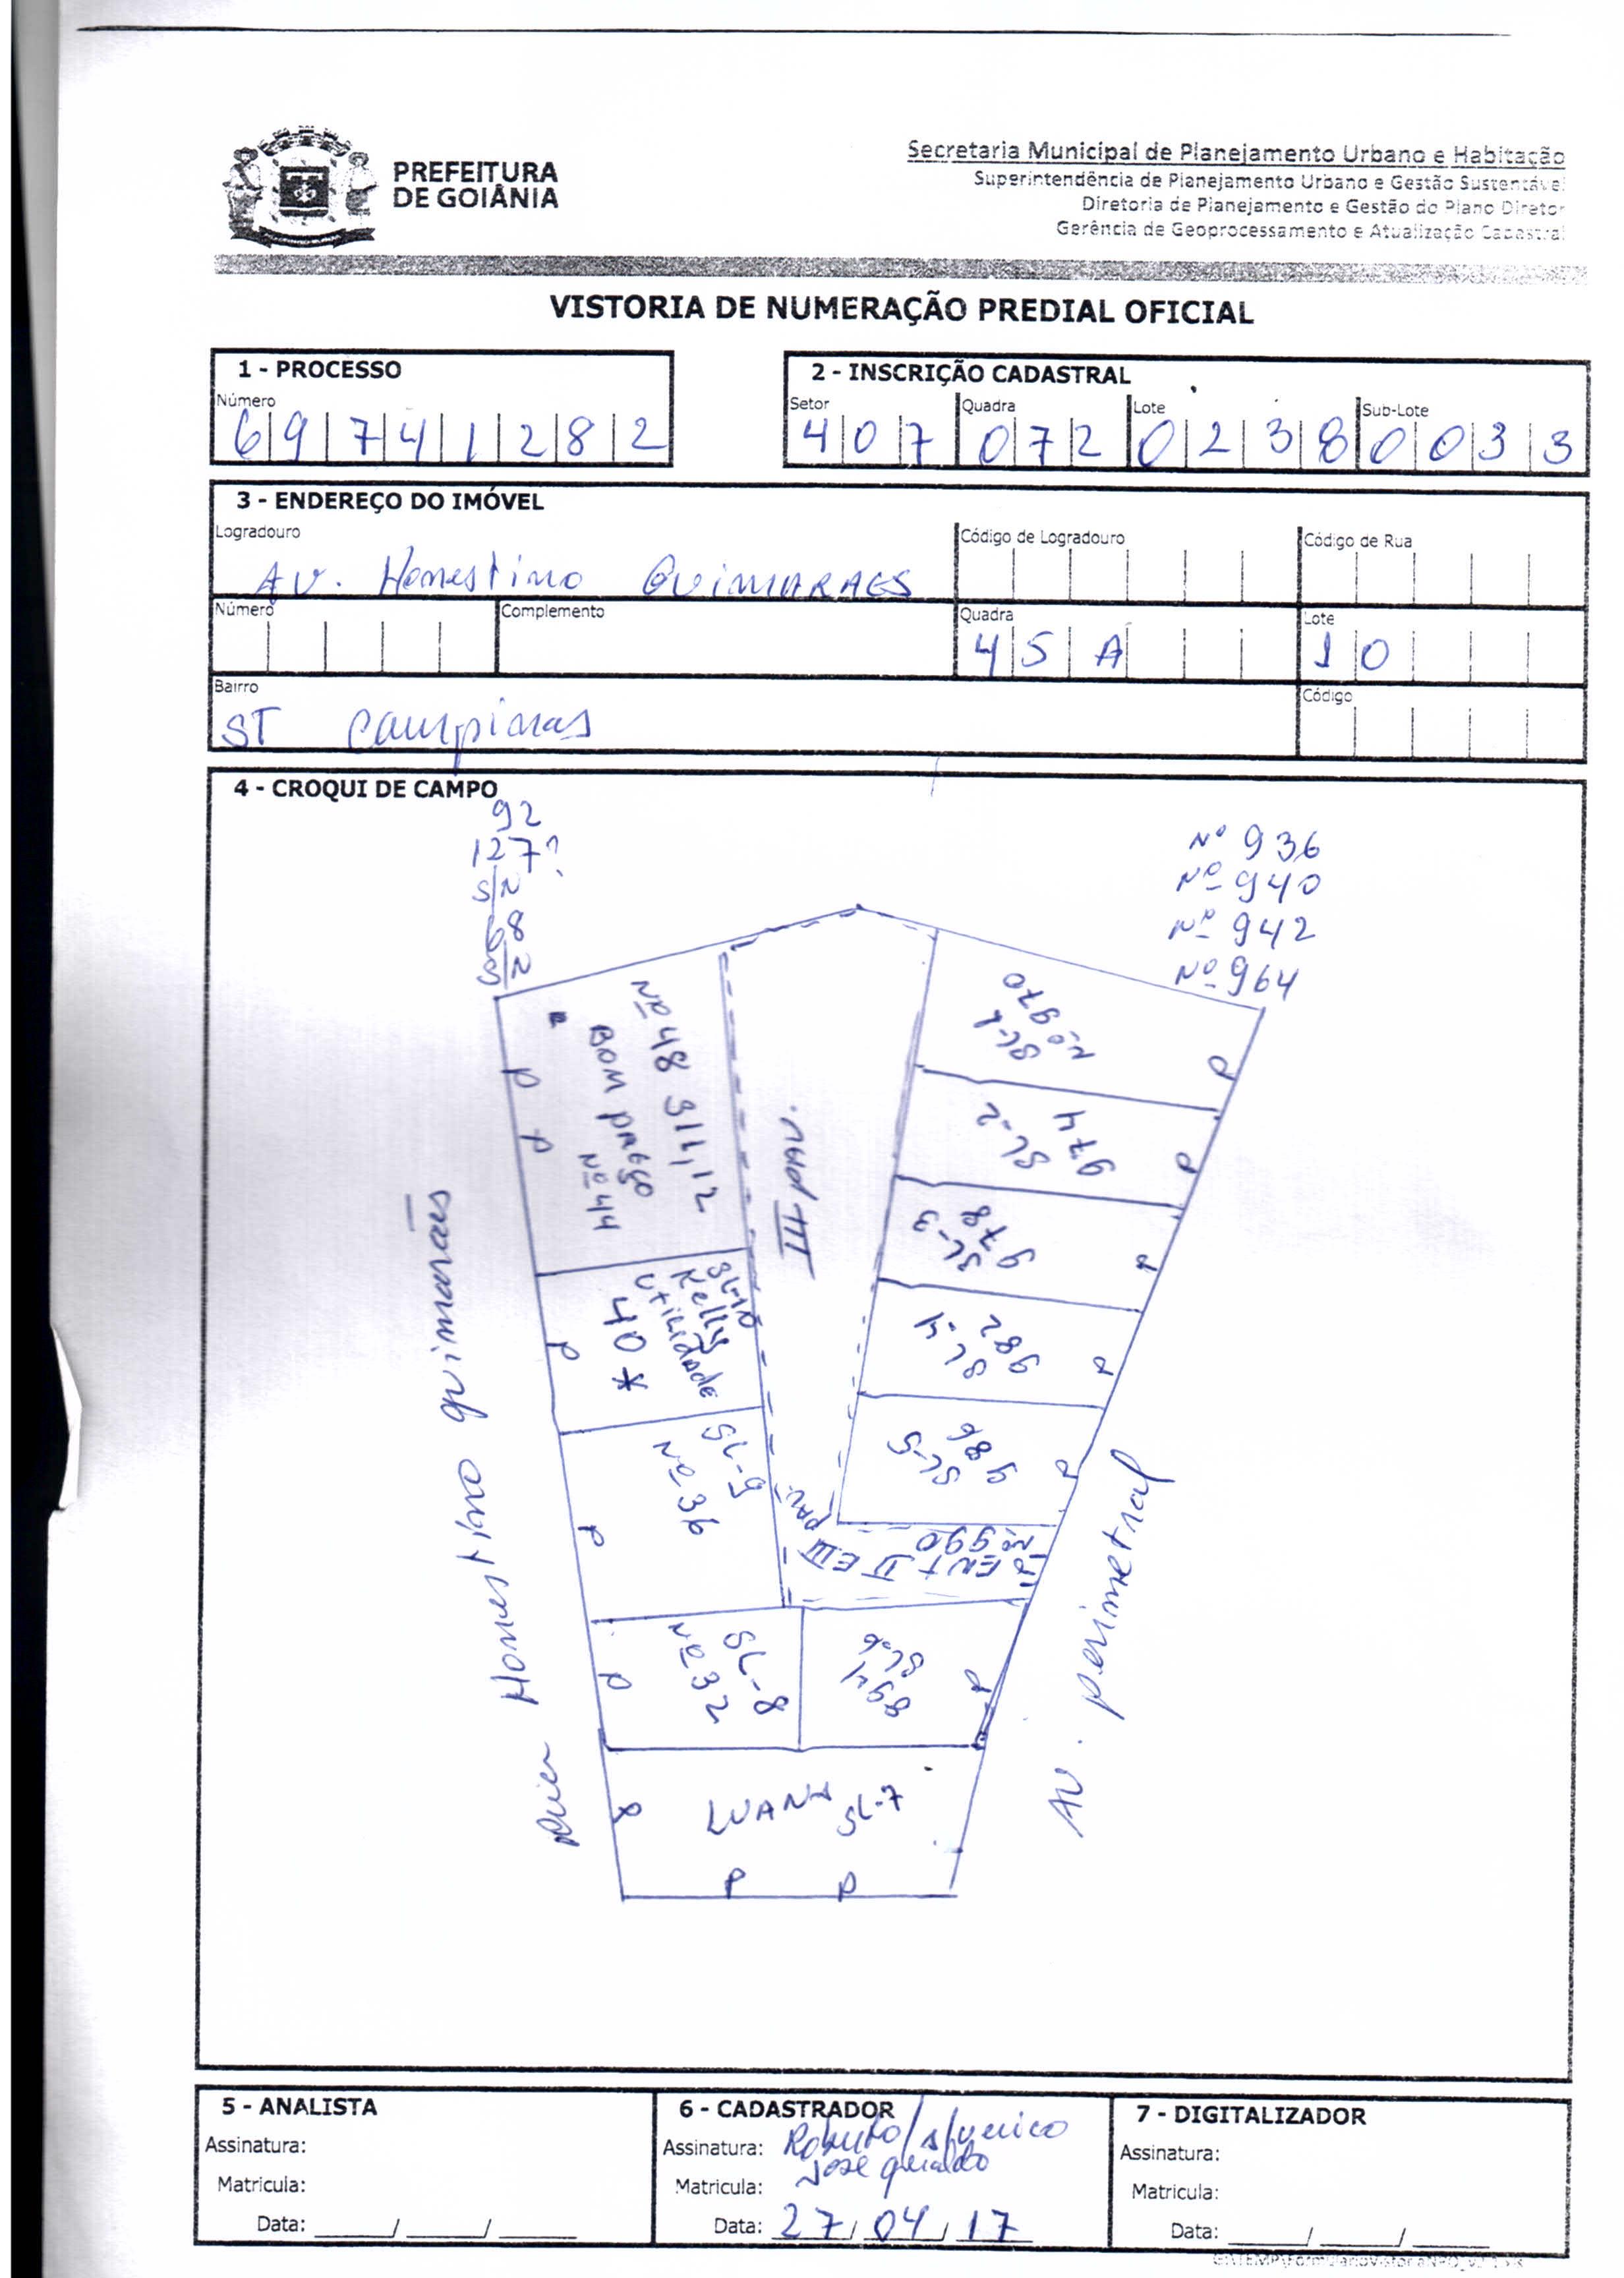 PREFEITURA
DE GOIÂNIA
Secretaria Municipal de Planejamento Urbano e Habitação
Superintendência de Planejamento Urbano e Gestão Sustentável
Diretoria de Planejamento e Gestão do Plano Diretor
Gerência de Geoprocessamento e Atualização Cadastral
VISTORIA DE NUMERAÇÃO PREDIAL OFICIAL
1 - PROCESSO
Número
69741282
2 - INSCRIÇÃO CADASTRAL
Setor Quadra Lote Sub-Lote
407 072 0238 0033
3 - ENDEREÇO DO IMÓVEL
Logradouro Código de Logradouro Código de Rua
AV. Honestino GUIMARAES
Número Complemento Quadra Lote
45A 10
Bairro Código
ST Campinas
4 - CROQUI DE CAMPO
92
127?
S/N
68
S/N
Nº 936
Nº 940
Nº 942
Nº 964
Nº 48 SL1,12
BOM PREÇO
Nº 44
III PAV.
SL-1
Nº 970
SL-2
974
SL-3
978
SL-4
982
SL-5
986
SL-10
Kelly
Utilidade
40 *
SL-9
Nº 36
PAV.
ENT II E III
Nº 990
SL-8
Nº 32
SL-6
994
LUANA SL-7
P
P
P
P
P
P
P
P
P
P
P
P
P
P
Rua Honestino guimarães
AV. perimetral
5 - ANALISTA
Assinatura:
Matricula:
Data: ____/____/____
6 - CADASTRADOR
Assinatura: Roberto
José geraldo
Matricula:
Data: 27/04/17
7 - DIGITALIZADOR
Assinatura:
Matricula:
Data: ____/____/____